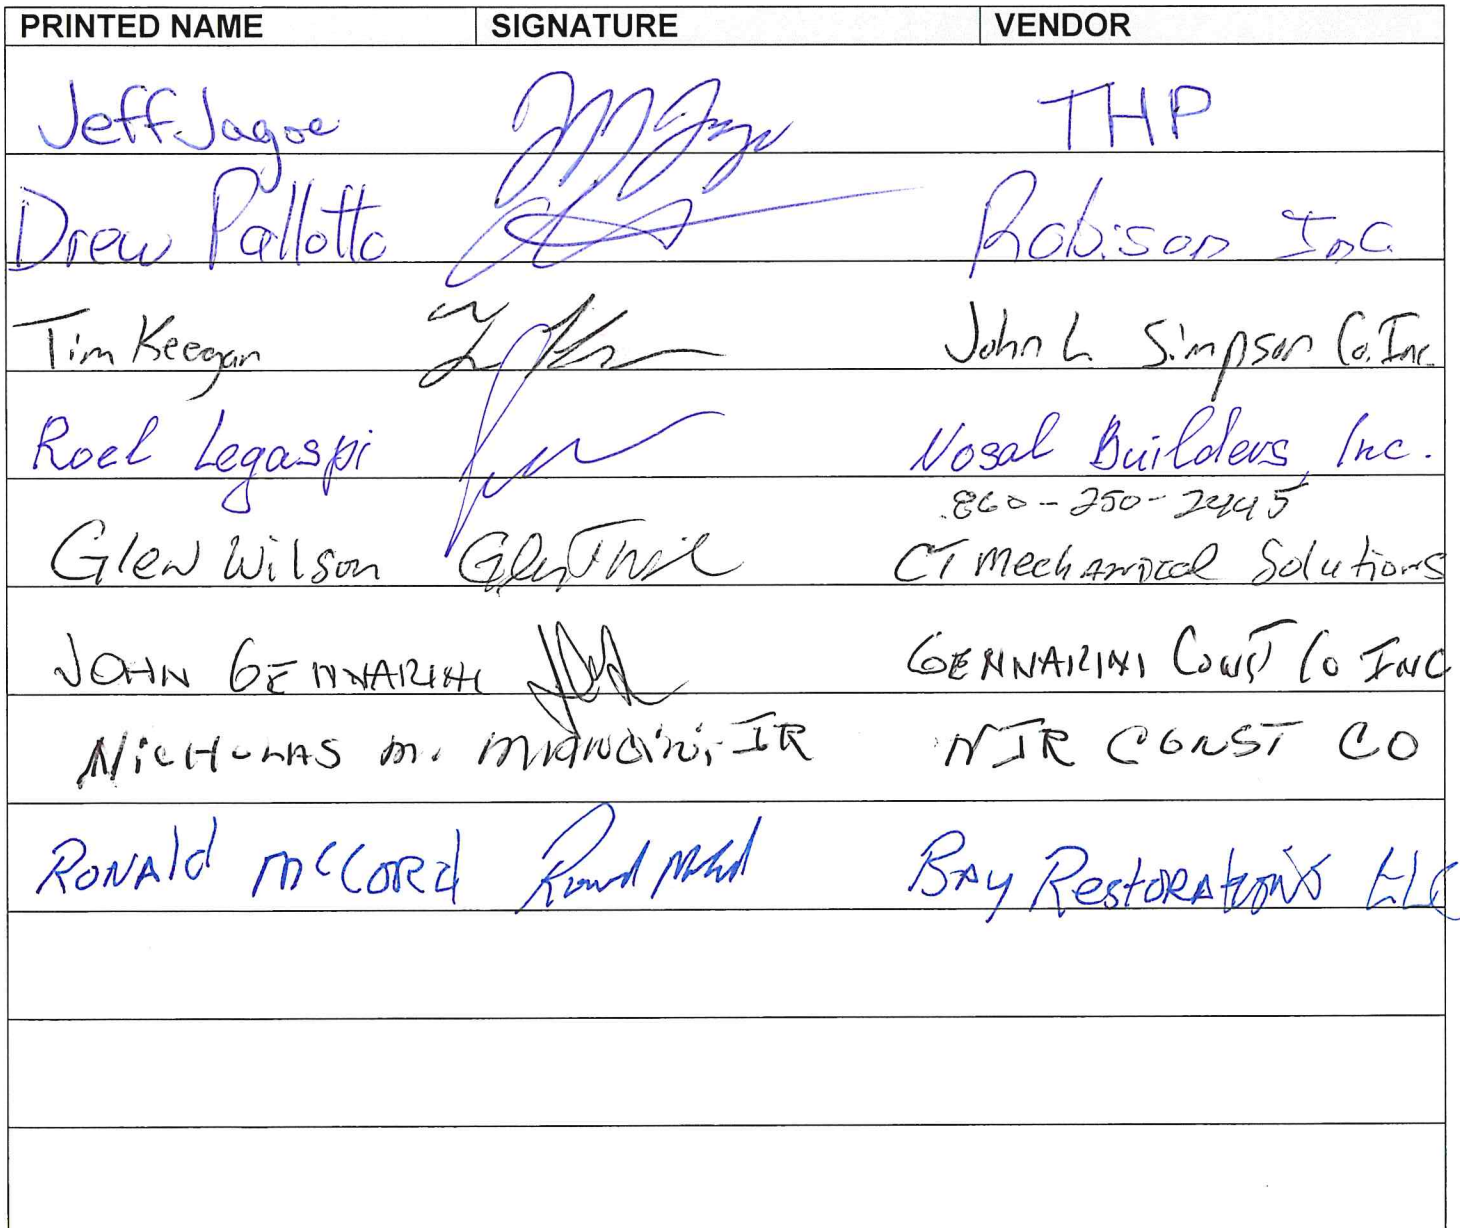 PRINTED NAME SIGNATURE VENDOR
Jeff Jagoe THP
Drew Pallotto Robison Inc.
Tim Keegan John L Simpson Co. Inc.
Roel Legaspi Nosal Builders, Inc.
860-250-2445
Glen Wilson CT Mechanical Solutions
JOHN GENNARINI GENNARINI Const Co INC
NICHOLAS M. MANCINI, JR NJR CONST CO
RONALd McCORd BAY RestORAtioNS LLC